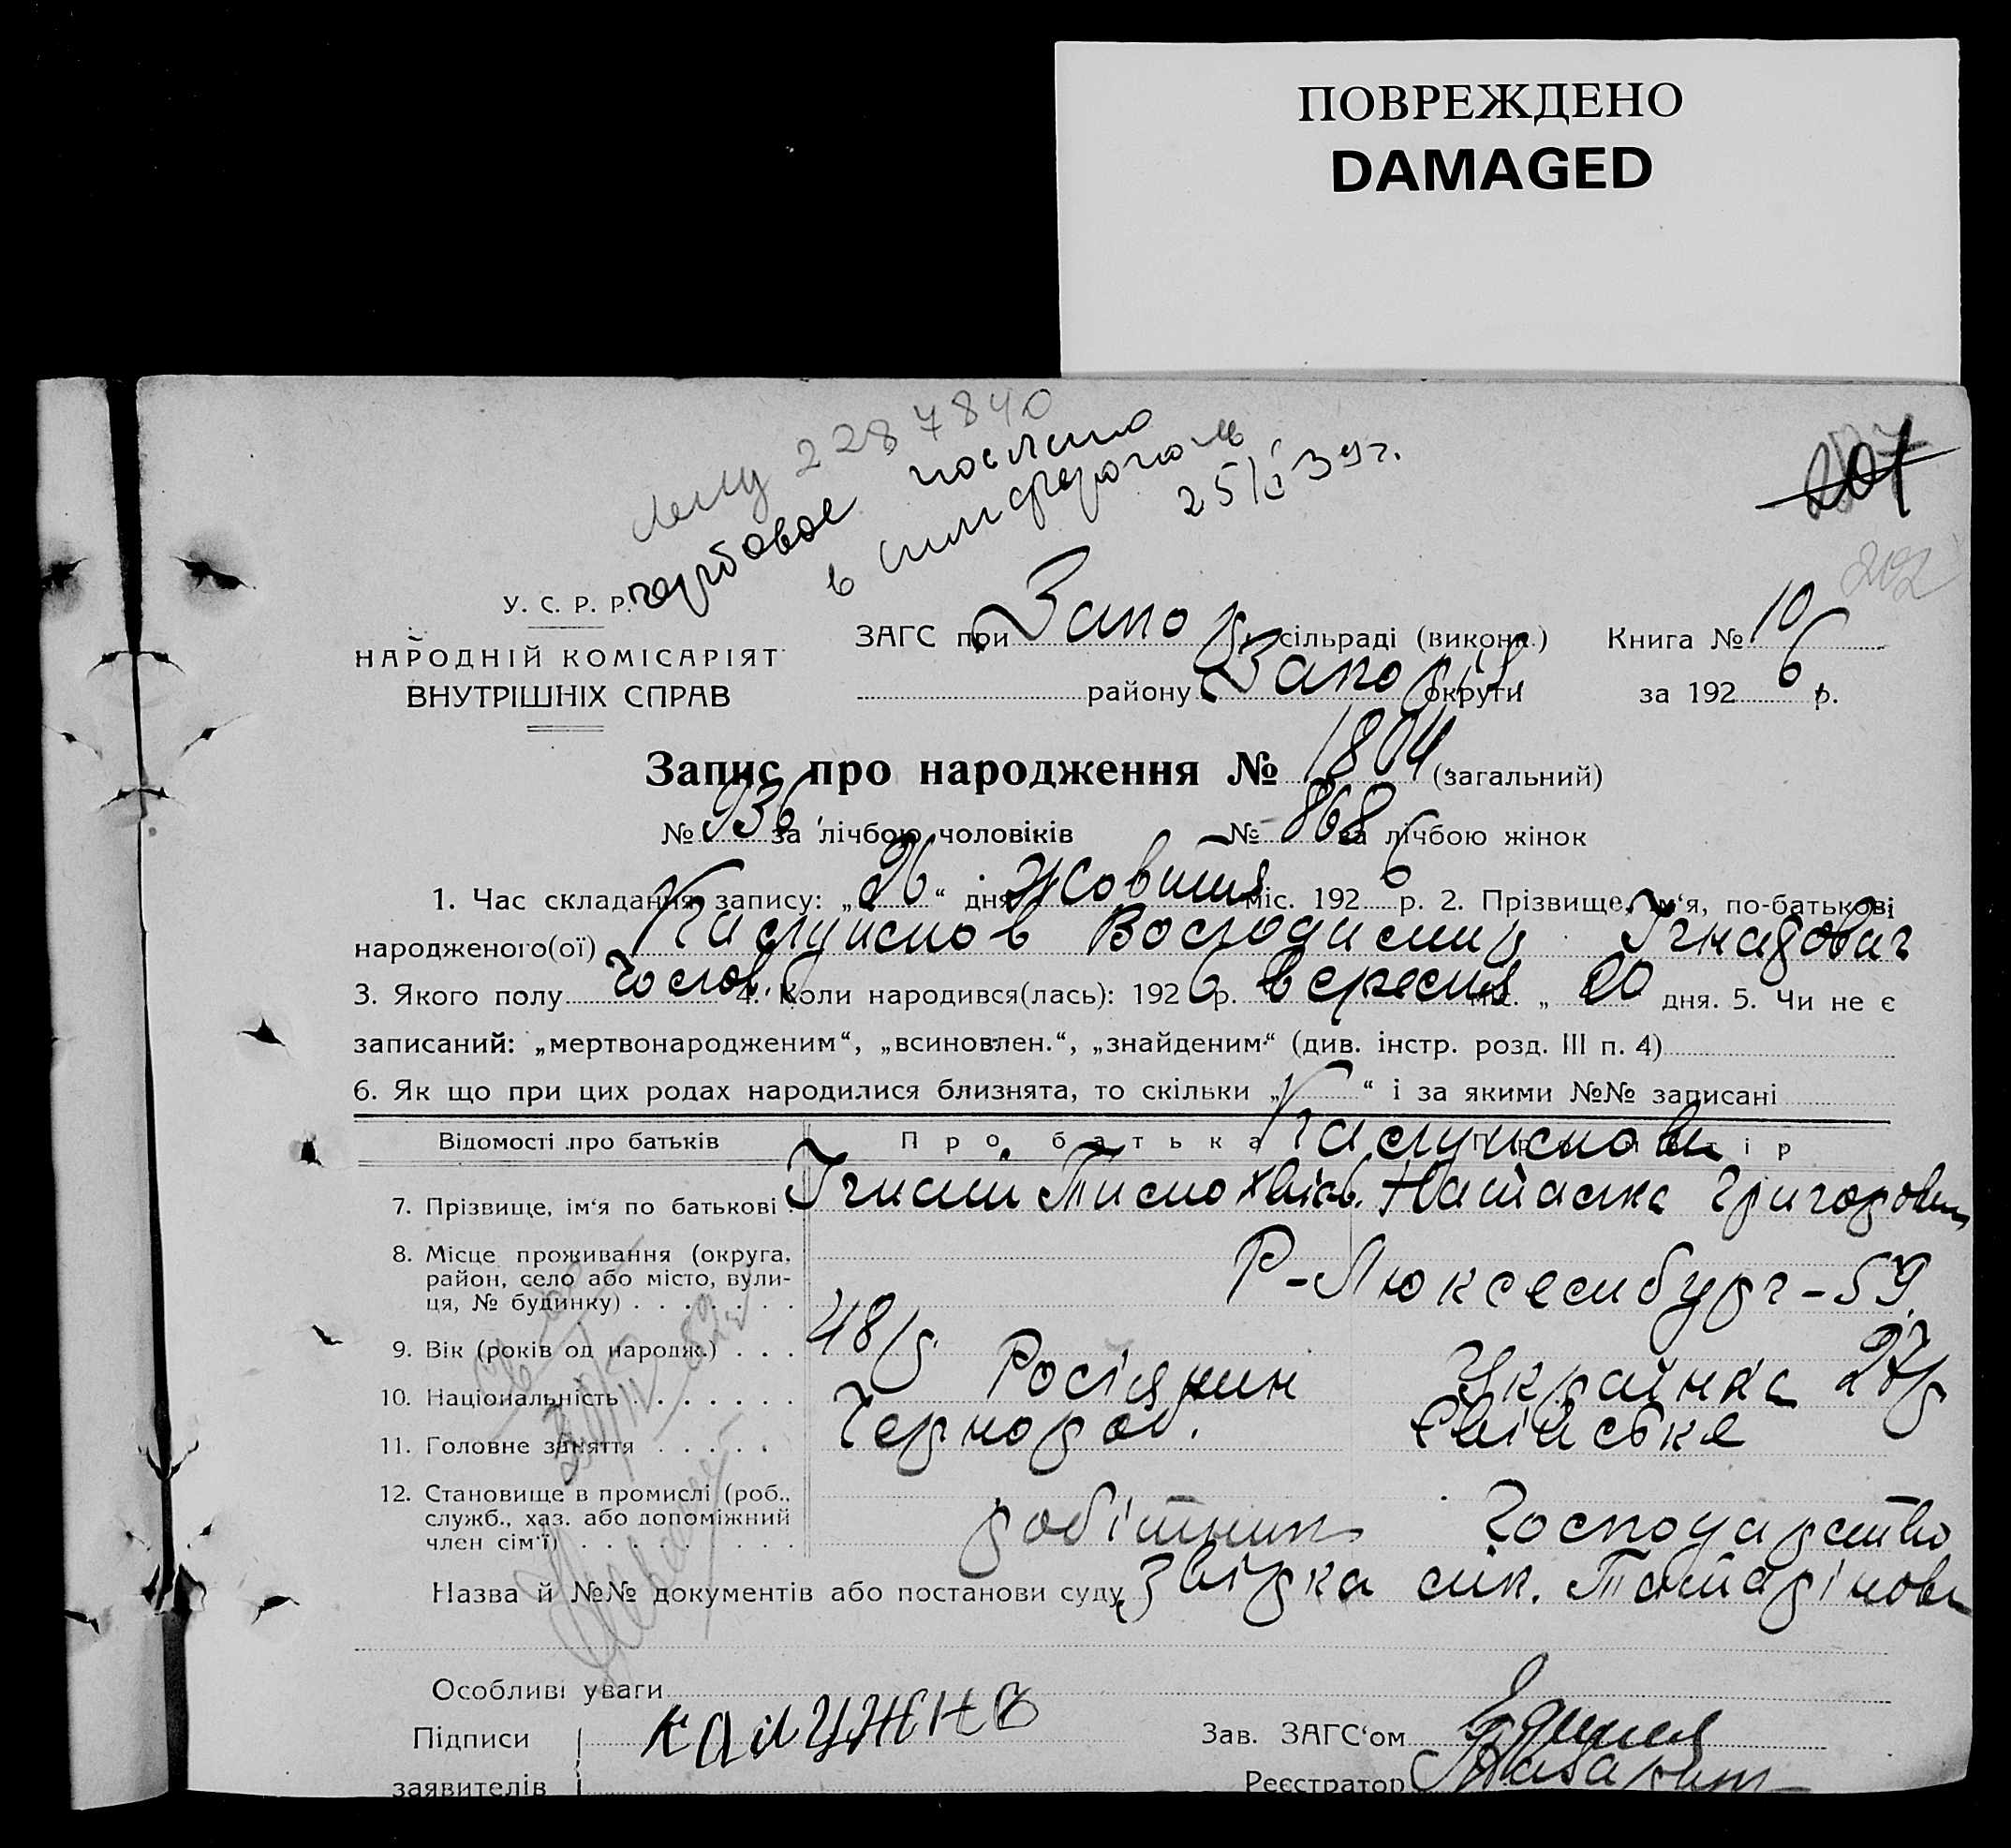 ПОВРЕЖДЕНО
DAMAGED
2287840
гербовое послано
в Симферополь
25/ 39 г.
201
202
У. С. Р. Р.
НАРОДНІЙ КОМІСАРІЯТ
ВНУТРІШНІХ СПРАВ
ЗАГС при Запор сільраді (викона.) Книга № 10
району Запоріз округи за 1926 р.
Запис про народження № 1804 (загальний)
№ 936 за лічбою чоловіків № 868 за лічбою жінок
1. Час складання запису: „26“ дня Жовтня міс. 1926 р. 2. Прізвище, ім‘я, по-батькові
народженого(ої) Калужнов Володимир Ігнатович
3. Якого полу Чолов. 4. Коли народився(лась): 1926 р. вересня міс. „ 20 дня. 5. Чи не є
записаний: „мертвонародженим“, „всиновлен.“, „знайденим“ (див. інстр. розд. III п. 4)
6. Як що при цих родах народилися близнята, то скільки „ “ і за якими №№ записані
Відомості про батьків Про батька Калужнови Про матір
7. Прізвище, ім‘я по батькові Ігнат Тимохвієв. Наталка Григоровн
8. Місце проживання (округа,
район, село або місто, вули-
ця, № будинку) Р-Люксембург-59.
9. Вік (років од народж.) 48/р. 27/р
10. Національність Росіянин Українка
11. Головне заняття Чернороб. Хатське
12. Становище в промислі (роб.,
служб., хаз. або допоміжний
член сім‘ї) робітник Господарство
Назва й №№ документів або постанови суду Звірка мік. Татарінови
Особливі уваги
Підписи Калужнв Зав. ЗАГС‘ом
заявителів Реєстратор